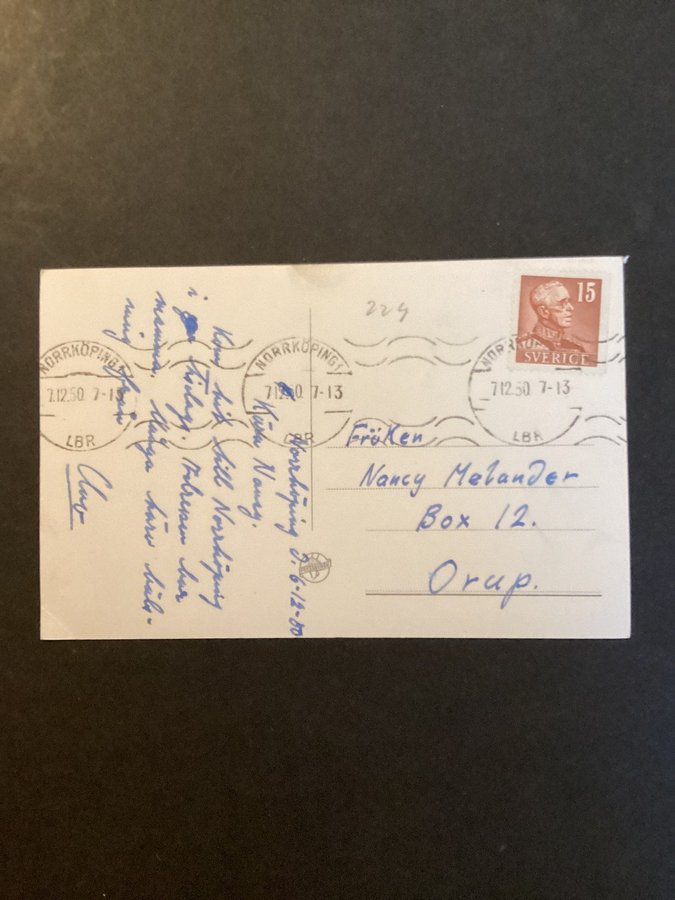 15
SVERIGE
224
NORRKÖPING 1
7.12.50 7-13
LBR
NORRKÖPING 1
7.12.50 7-13
LBR
NORRKÖPING
7.12.50 7-13
LBR
Fröken
Nancy Melander
Box 12.
Orup.
Norrköping d. 6-12-50
Kära Nancy.
Kom hit till Norrköping
i tisdags.
mamma. Många kära häls-
ning från